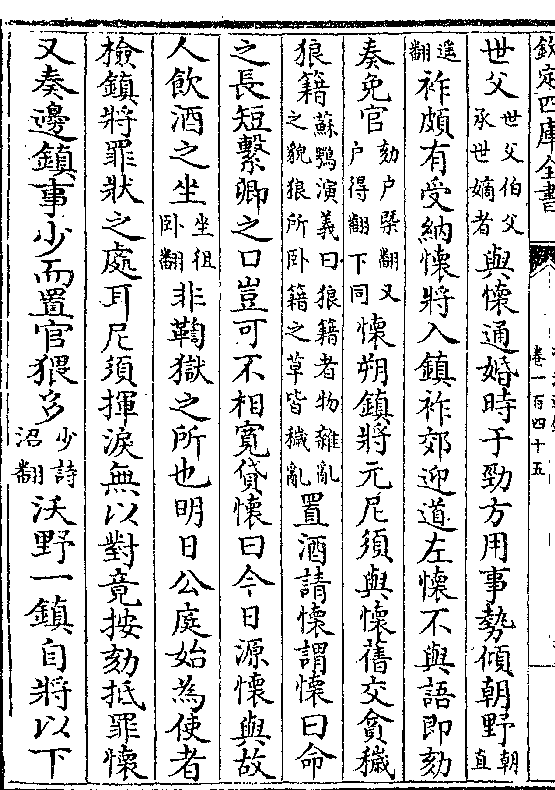 欽定四庫全書
卷一百四十五
世父世父伯父承世嫡者與懷通婚時于勁方用事勢傾朝野朝直
遥翻祚頗有受納懷將入鎮祚郊迎道左懷不與語即劾
奏免官劾户槩翻又户得翻下同懷朔鎮將元尼須與懷舊交貪穢
狼籍蘇鶚演義曰狼籍者物雜亂之貌狼所卧籍之草皆穢亂置酒請懷謂懷曰命
之長短繫卿之口豈可不相寛貸懷曰今日源懷與故
人飲酒之坐坐徂卧翻非鞫獄之所也明日公庭始為使者
檢鎮將罪狀之處耳尼須揮淚無以對竟按劾抵罪懷
又奏邊鎮事少而置官猥多少詩沼翻沃野一鎮自將以下